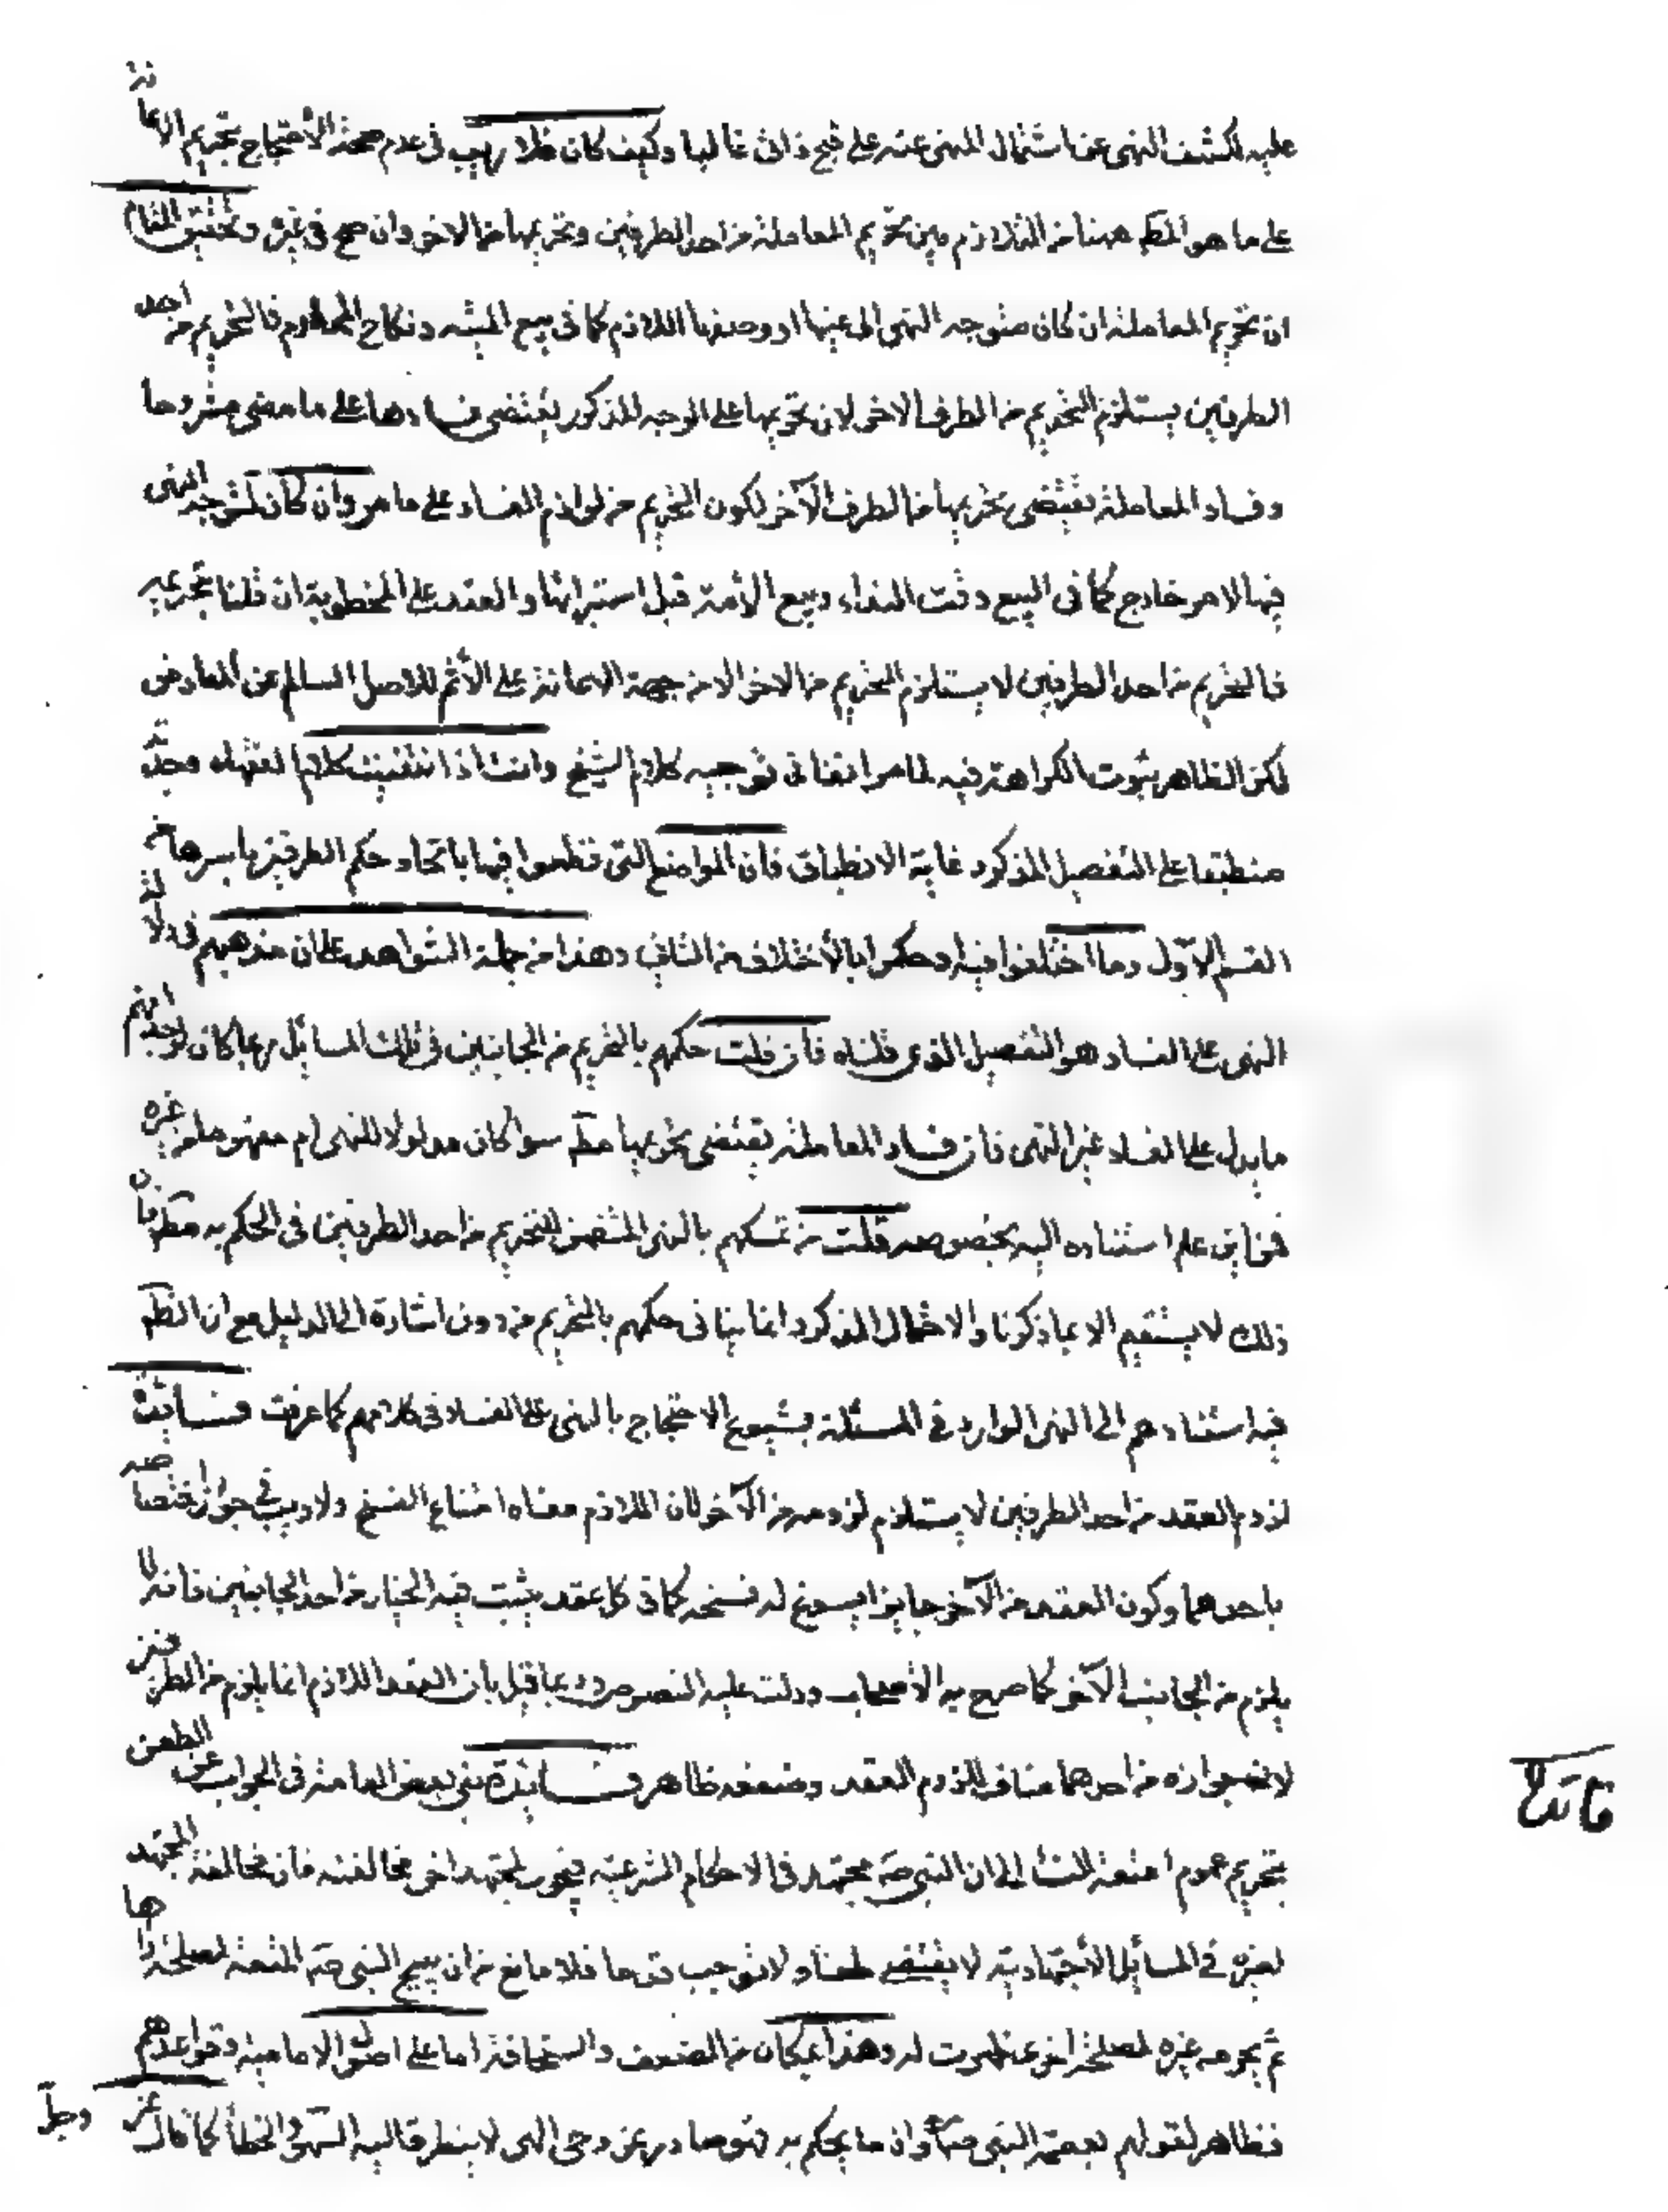 عليه لكشف النهى عن اشتمال المنهى عنه على قبح ذاتى غالبا وكيف كان فلا ريب فى عدم صحة الاحتجاج بتحريم الاعانة
على ما هو المط ههنا من التلازم بين تحريم المعاملة من احد الطرفين وتحريمها من الاخر وان صح فى غيره وتحقيق المقام
ان تحريم المعاملة ان كان متوجه النهى الى عينها او وصفها اللازم كما فى بيع الميتة ونكاح المحارم فالتحريم من احد
الطرفين يستلزم التحريم من الطرف الاخر لان تحريمها على الوجه المذكور يقتضى فسادها على ما مضى مشروحا
وفساد المعاملة يقتضى تحريمها من الطرف الآخر لكون التحريم من لوازم الفساد على ما مر وان كان لتوجه النهى
فيها لامر خارج كما فى البيع وقت النداء وبيع الأمة قبل استبرائها والعقد على المخطوبة ان قلنا بتحريمه
فالتحريم من احد الطرفين لا يستلزم التحريم من الاخر الا من جهة الاعانة على الأثم للاصل السالم عن المعارض
لكن الظاهر ثبوت الكراهة فيه لما مر انفا فى توجيه كلام الشيخ وانت اذا تتبعت كلام الفقهاء وجدته
منطبقا على التفصيل المذكور غاية الانطباق فان المواضع التى قطعوا فيها باتحاد حكم الطرفين باسرها من
القسم الأول وما اختلفوا فيه او حكموا بالأختلاف من الثانى وهذا من جملة الشواهد على ان مذهبهم فى دلالة
النهى على الفساد هو التفصيل الذى قلناه فان قلت حكمهم بالتحريم من الجانبين فى تلك المسائل ربما كان لوجدانهم
ما يدل على الفساد غير النهى فان فساد المعاملة يقتضى تحريمها مط سوا كان مدلولا للنهى ام مفهوما من غيره
فمن اين علم استناده اليه بخصوصه قلت من تمسكهم بالنهى المتضمن للتحريم من احد الطرفين فى الحكم به مط فان
ذلك لا يستقيم الا بما ذكرنا والاحتمال المذكور انما ينافى حكمهم بالتحريم من دون اشارة الى الدليل مع ان الظ
فيه استنادهم الى النهى الوارد فى المسئلة بشيوع الاحتجاج بالنهى على الفساد فى كلامهم كما عرفت فــائدة
لزوم العقد من احد الطرفين لا يستلزم لزومه من الآخر لان اللازم معناه امتناع الفسخ ولا ريب فى جواز اختصاصه
باحدهما وكون العقد من الآخر جايزا يسوغ له فسخه كما فى كل عقد يثبت فيه الخيار من احد الجانبين فانه لا
يلزم من الجانب الآخر كما صرح به الاصحاب ودلت عليه النصوص وربما قيل بان العقد اللازم انما يلزم من الطرفين
لان جوازه من احدهما مناف للزوم العقد وضعفه ظاهر فــائدة بنى بعض العامة فى الجواب عن الطعن
بتحريم عمر متعة النساء الى ان النبى ص مجتهد فى الاحكام الشرعية فيجوز لمجتهد اخر مخالفته فان مخالفة المجتهد
لغيره فى المسائل الأجتهادية لا يقتضى طعنا ولا توجب قدحا فلا مانع من ان يبيح النبى ص المتعة لمصلحة راها
ثم يحرمه غيره لمصلحة اخرى ظهرت له وهذا بمكان من الضعف والسخافة اما على اصول الامامية وقواعدهم
فظاهر لقولهم بعصمة النبى ص وان ما يحكم به فهو صادر عن وحى الهى لا يتطرق اليه السهو والخطأ كما قال عز وجل
فائدة